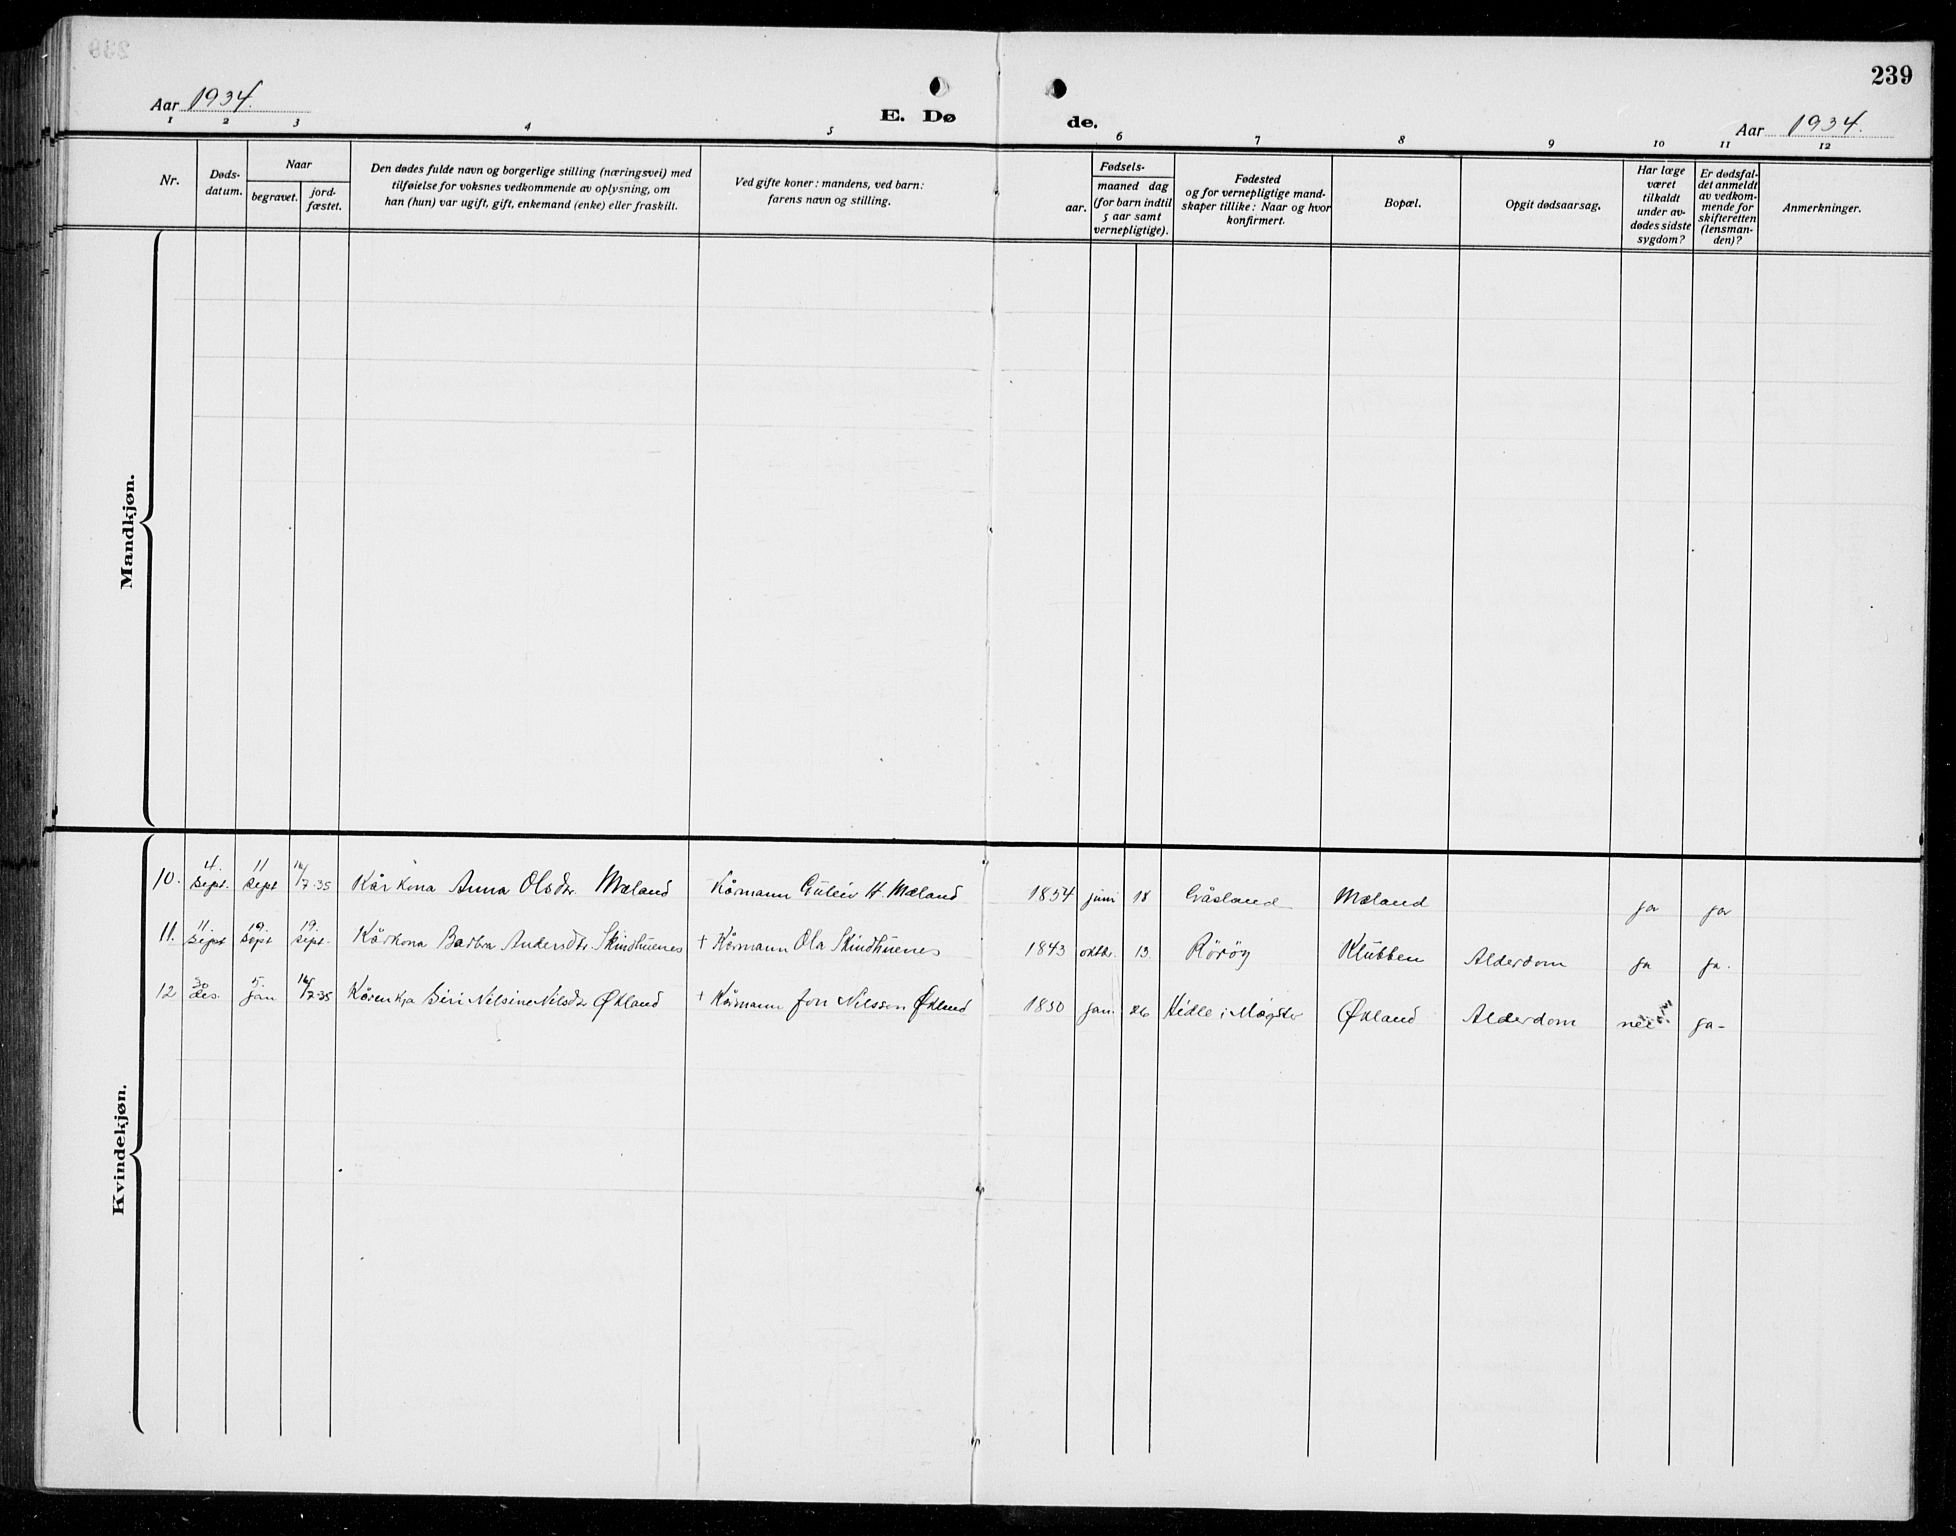 239
Aar 1934.
E. Dø
de.
Aar 1934.
1 2 3 4 5 6 7 8 9 10 11 12
Nr.
Døds-
datum.
Naar
begravet.
jord-
fæstet.
Den dødes fulde navn og borgerlige stilling (næringsvei) med
tilføielse for voksnes vedkommende av oplysning, om
han (hun) var ugift, gift, enkemand (enke) eller fraskilt.
Ved gifte koner: mandens, ved barn:
farens navn og stilling.
Fødsels-
aar.
maaned dag
(for barn indtil
5 aar samt
vernepligtige).
Fødested
og for vernepligtige mand-
skaper tillike: Naar og hvor
konfirmert.
Bopæl.
Opgit dødsaarsag.
Har læge
været
tilkaldt
under av-
dødes sidste
sygdom?
Er dødsfal-
det anmeldt
av vedkom-
mende for
skifteretten
(lensman-
den)?
Anmerkninger.
Mandkjøn.
Kvindekjøn.
10. 4 sept. 11 sept 16/7-35 Kårkona Anna Olsdtr. Mæland Kårmann Guleiv H. Mæland 1854 juni 18 Gåsland Mæland ja ja
11. 11 sept 19. sept 19. sept. Kårkona Barbra Andersdtr. Skindhuenes + Kårmann Ola Skindhuenes 1843 oktbr. 13. Röröy Klubben Alderdom ja ja.
12 30 des. 5. jan 16/7-35 Kårenkja Siri Nilsine Nilsdtr Økland + Kårmann Jon Nilsson Økland 1850 jan. 26 Hidle i Møgster Økland Alderdom nei ja-